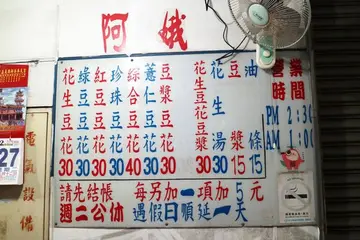 阿娥
花生豆花 30
綠豆豆花 30
紅豆豆花 30
珍珠豆花 30
綜合豆花 40
薏仁豆花 30
豆漿豆花 30
花生豆花豆漿 30
花生湯 30
豆漿 15
油條 15
營業時間
PM 2:30
AM 1:00
請先結帳 每另加一項加5元
週二公休 遇假日順延一天
27
電氣設備